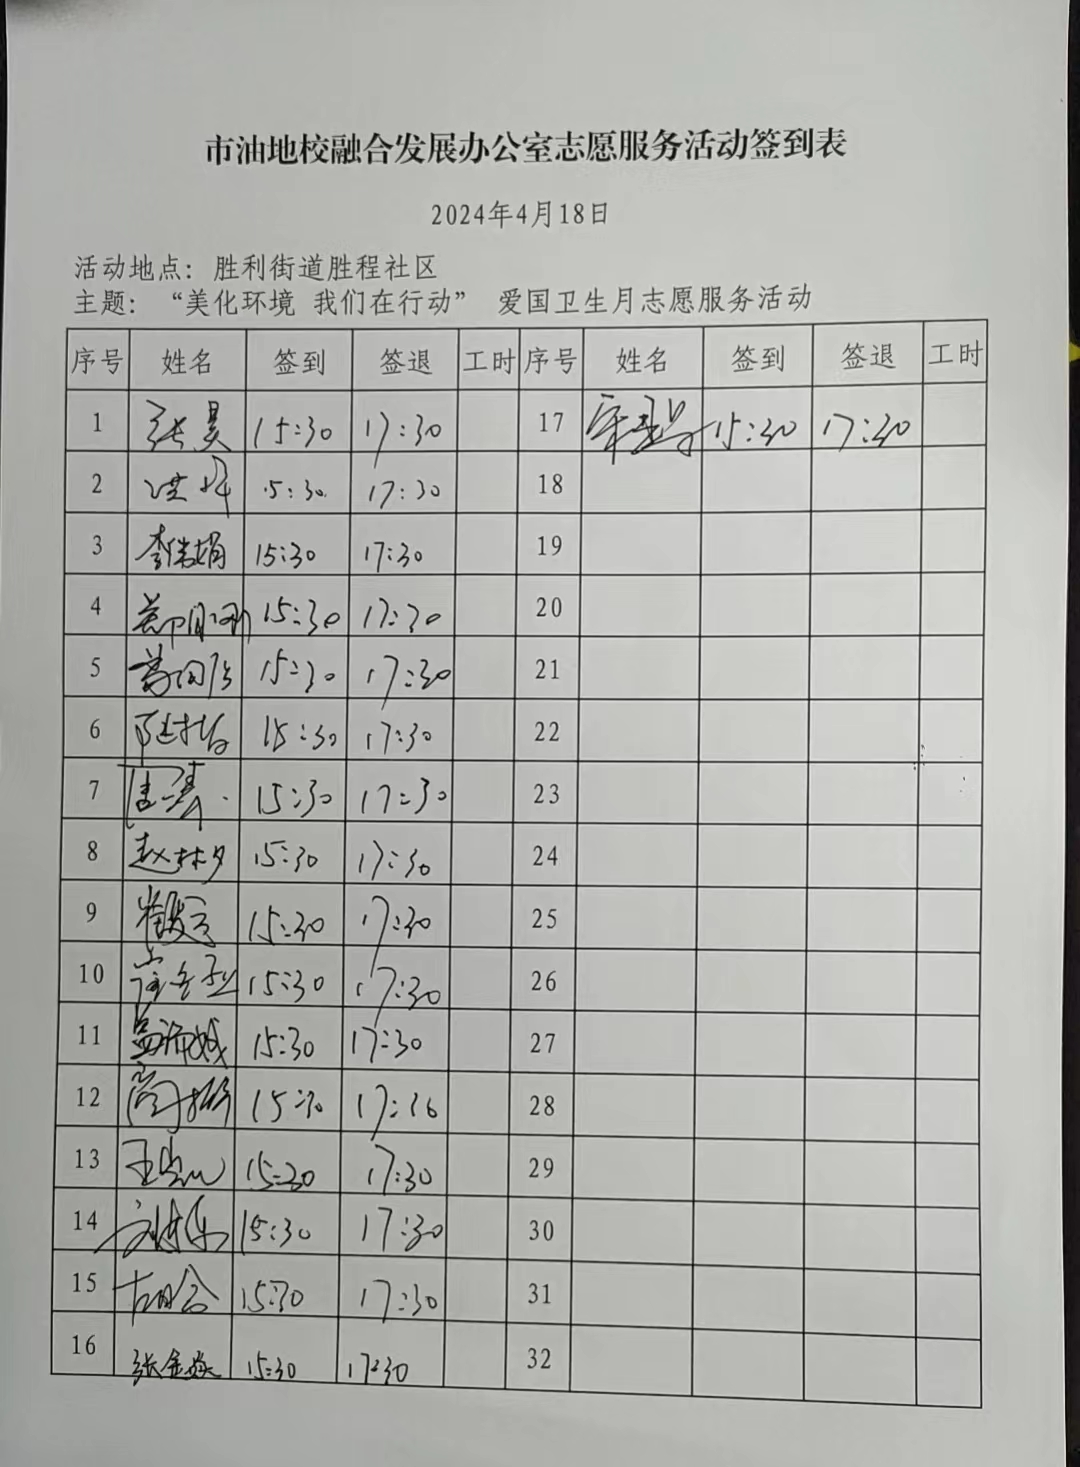 市油地校融合发展办公室志愿服务活动签到表
2024年4月18日
活动地点：胜利街道胜程社区
主题：“美化环境 我们在行动” 爱国卫生月志愿服务活动
序号 姓名 签到 签退 工时 序号 姓名 签到 签退 工时
1 张昊 15:30 17:30 17 15:30 17:30
2 5:30 17:30 18
3 15:30 17:30 19
4 15:30 17:30 20
5 15:30 17:30 21
6 15:30 17:30 22
7 15:30 17:30 23
8 赵林夕 15:30 17:30 24
9 15:30 17:30 25
10 15:30 17:30 26
11 15:30 17:30 27
12 28
13 15:30 17:30 29
14 15:30 17:30 30
15 15:30 17:30 31
16 张金焕 15:30 17:30 32